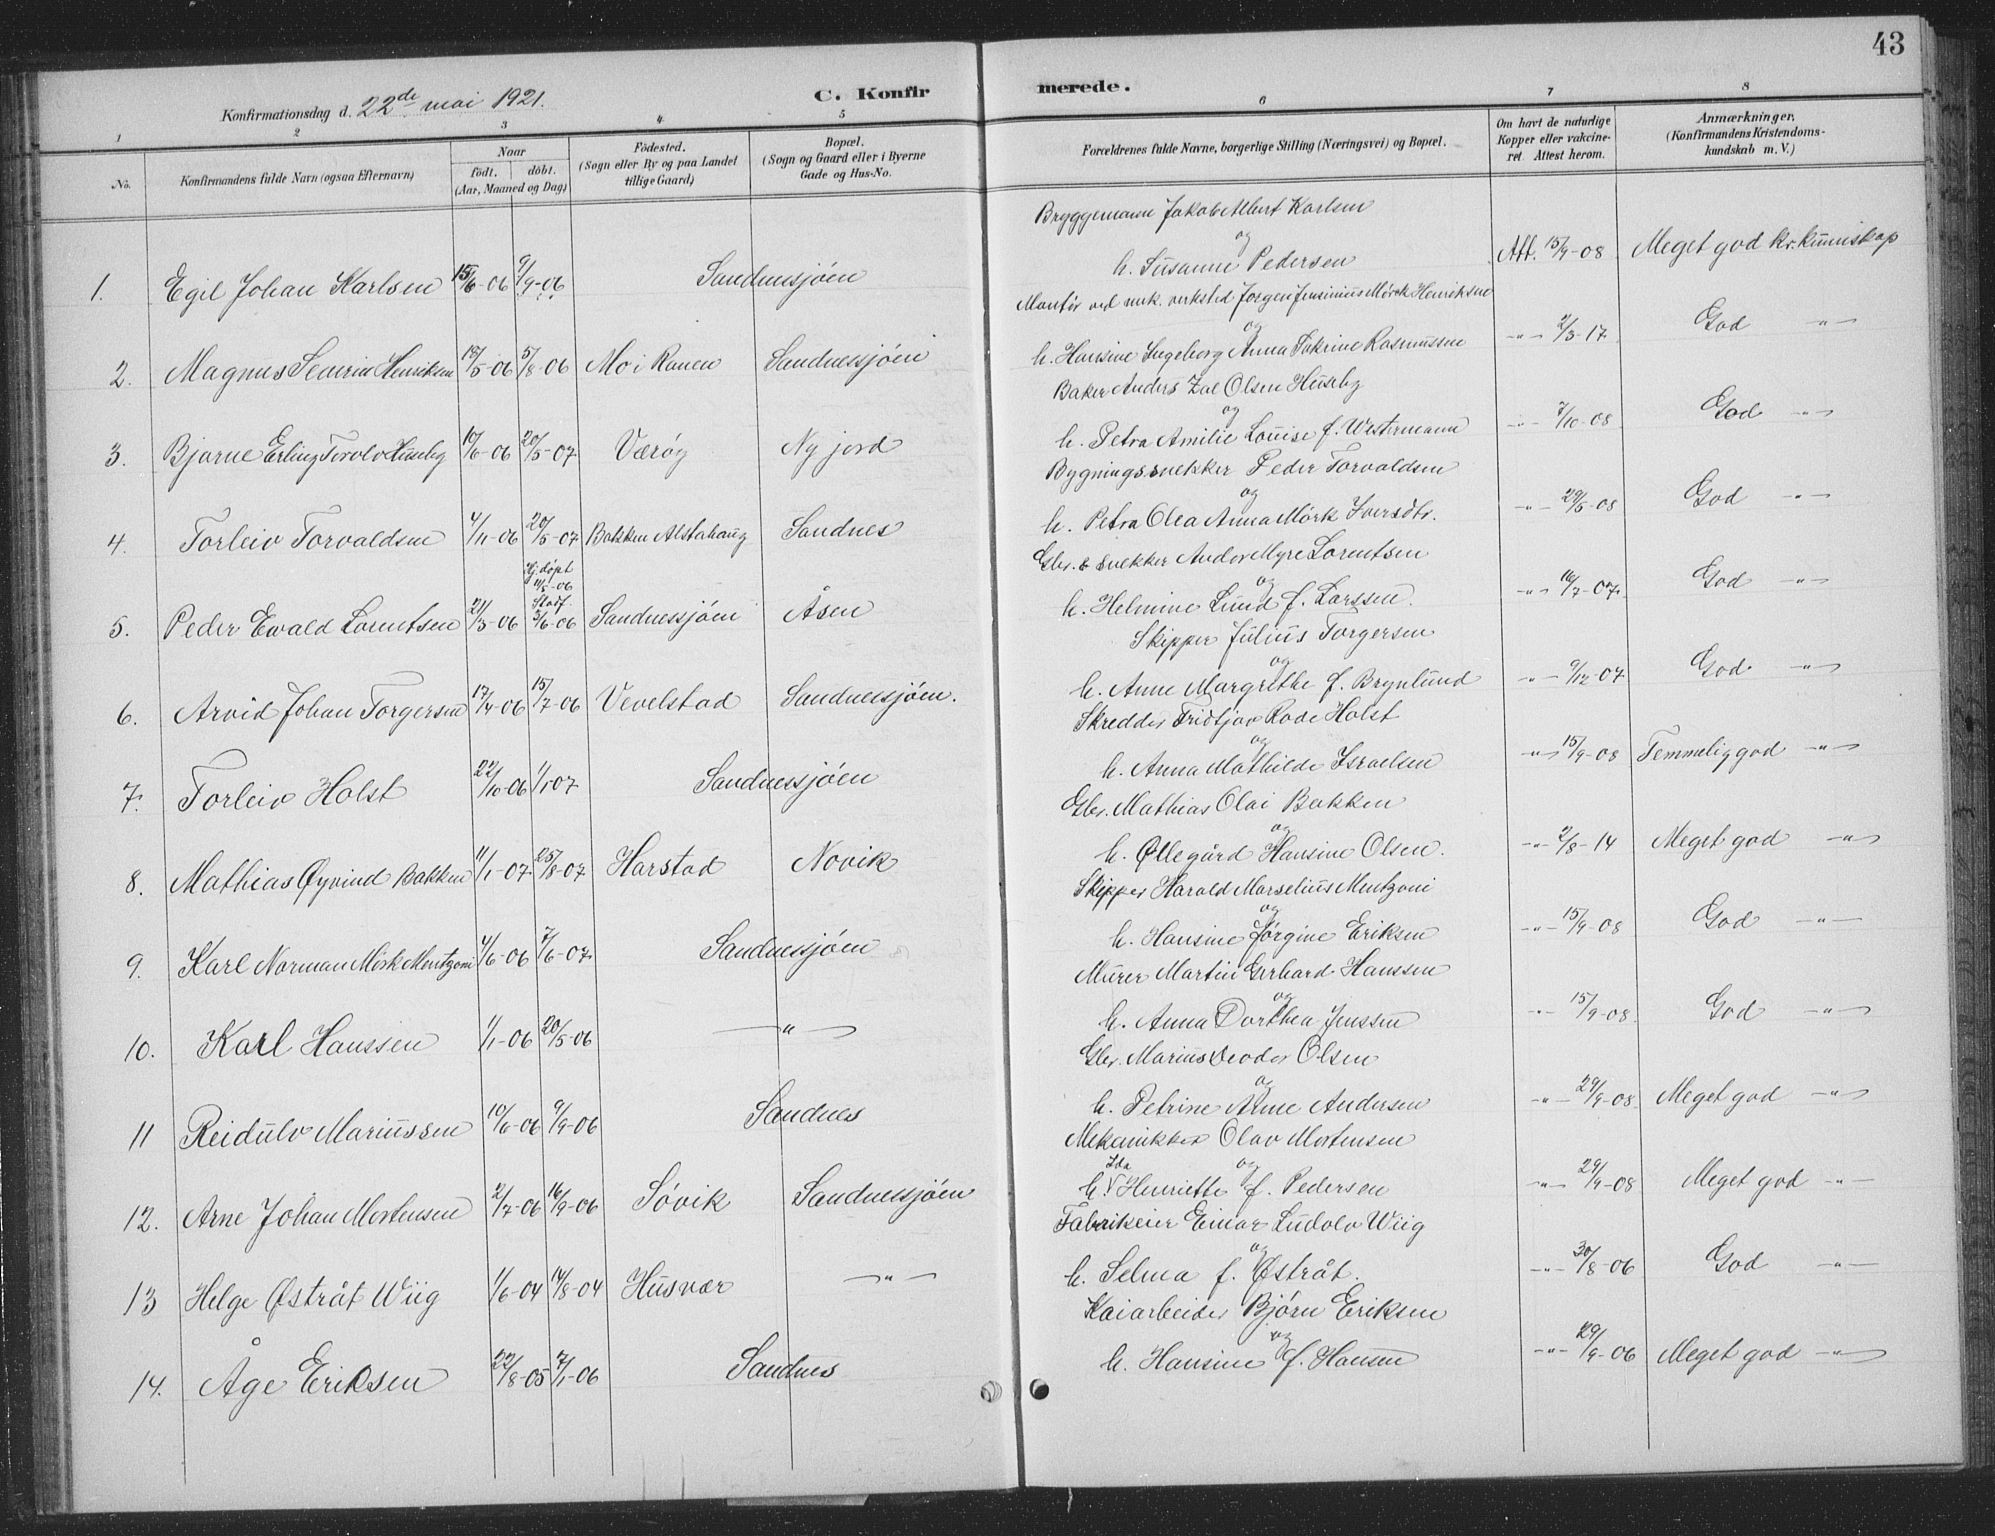 43
Konfirmationsdag d. 22de mai 1921.
C. Konfirmerede.
1 2 3 4 5 6 7 8
No.
Konfirmandens fulde Navn (ogsaa Efternavn)
Naar
født. døbt.
(Aar, Maaned og Dag)
Fødested.
(Sogn eller By og paa Landet
tillige Gaard)
Bopæl.
(Sogn og Gaard eller i Byerne
Gade og Hus-No.
Forældrenes fulde Navne, borgerlige Stilling (Næringsvei) og Bopæl.
Om havt de naturlige
Kopper eller vakcine-
ret. Attest herom.
Anmærkninger.
(Konfirmandens Kristendoms-
kundskab m. V.)
Bryggemann Jakob Albert Karlsen
og
1. Egil Johan Karlsen 15/6-06 9/9-06 Sandnessjøen h. Susanne Pedersen Att. 15/9-08 Meget god kr. kunnskap
Montør ved mek. verksted Jørgen Jensinius Mørck Henriksen
og
2. Magnus Severin Henriksen 15/5-06 5/8-06 Mo i Ranen Sandnessjøen h. Hansine Ingeborg Anna Katrine Rasmussen -"- 2/3-17 God -"-
Baker Anders Zal Olsen Huseby
og
3. Bjarne Erling Torolv Huseby 10/6-06 20/5-07 Værøy Ny jord h. Petra Amilie Louise f. Westermann -"- 7/10-08 God -"-
Bygningssnekker Peder Torvaldsen
og
4. Torleiv Torvaldsen 4/11-06 20/5-07 Bakken Alstahaug Sandnes h. Petra Olea Anna Mørk Iversdtr. -"- 29/5-08 God -"-
Gbr. & snekker Andor Myre Lorentsen
og
Hj.døpt
11/5-06
Stadf.
5. Peder Ewald Lorentsen 21/3-06 3/6-06 Sandnessjøen Åsen h. Helmine Lund f. Larssen. -"- 16/7-07. God -"-
Skipper Julius Torgersen
og
6. Arvid Johan Torgersen 17/4-06 15/7-06 Vevelstad Sandnessjøen. h. Anne Margrethe f. Brynlund -"- 9/12-07 God -"-
Skredder Fridtjov Rode Holst
og
7. Torleiv Holst 22/10-06 1/1 07 Sandnessjøen h. Anna Mathilde Israelsen -"- 15/9-08 Temmelig god -"-
Gbr. Mathias Olai Bakken
og
8. Mathias Øyvind Bakken 11/1-07 25/8-07 Harstad Novik h. Øllegård Hansine Olsen. -"- 2/8-14 Meget god -"-
Skipper Harald Marselius Mentzoni
og
9. Karl Norman Mørk Mentzoni 4/6-06 7/6-07 Sandnessjøen h. Hansine Jørgine Eriksen -"- 15/9-08 God -"-
Murer Martin Gerhard Hanssen
og
10. Karl Hanssen 1/1-06 20/5-06 -"- h. Anna Dorthea Jenssen -"- 15/9-08. God -"-
Gbr. Marius Teodor Olsen
og
11 Reidulv Mariussen 10/6-06 9/9-06 Sandnes h. Petrine Arne Andersen -"- 29/9-08 Meget god -"-
Mekanikker Olav Mortensen
Ida og
12. Arne Johan Mortensen 2/7-06 16/9-06 Søvik Sandnessjøen h. Henriette f. Pedersen -"- 29/9-08 Meget god -"-
Fabrikeier Einar Ludolv Wiig
og
13 Helge Østråt Wiig 1/6-04 14/8-04 Husvær -"- h. Selma f. Østråt. -"- 30/8-06 God -"-
Kaiarbeider Bjørn Eriksen
og
14. Åge Eriksen 22/8-05 7/1-06 Sandnes h. Hansine f. Hansen -"- 29/9-06 Meget god -"-